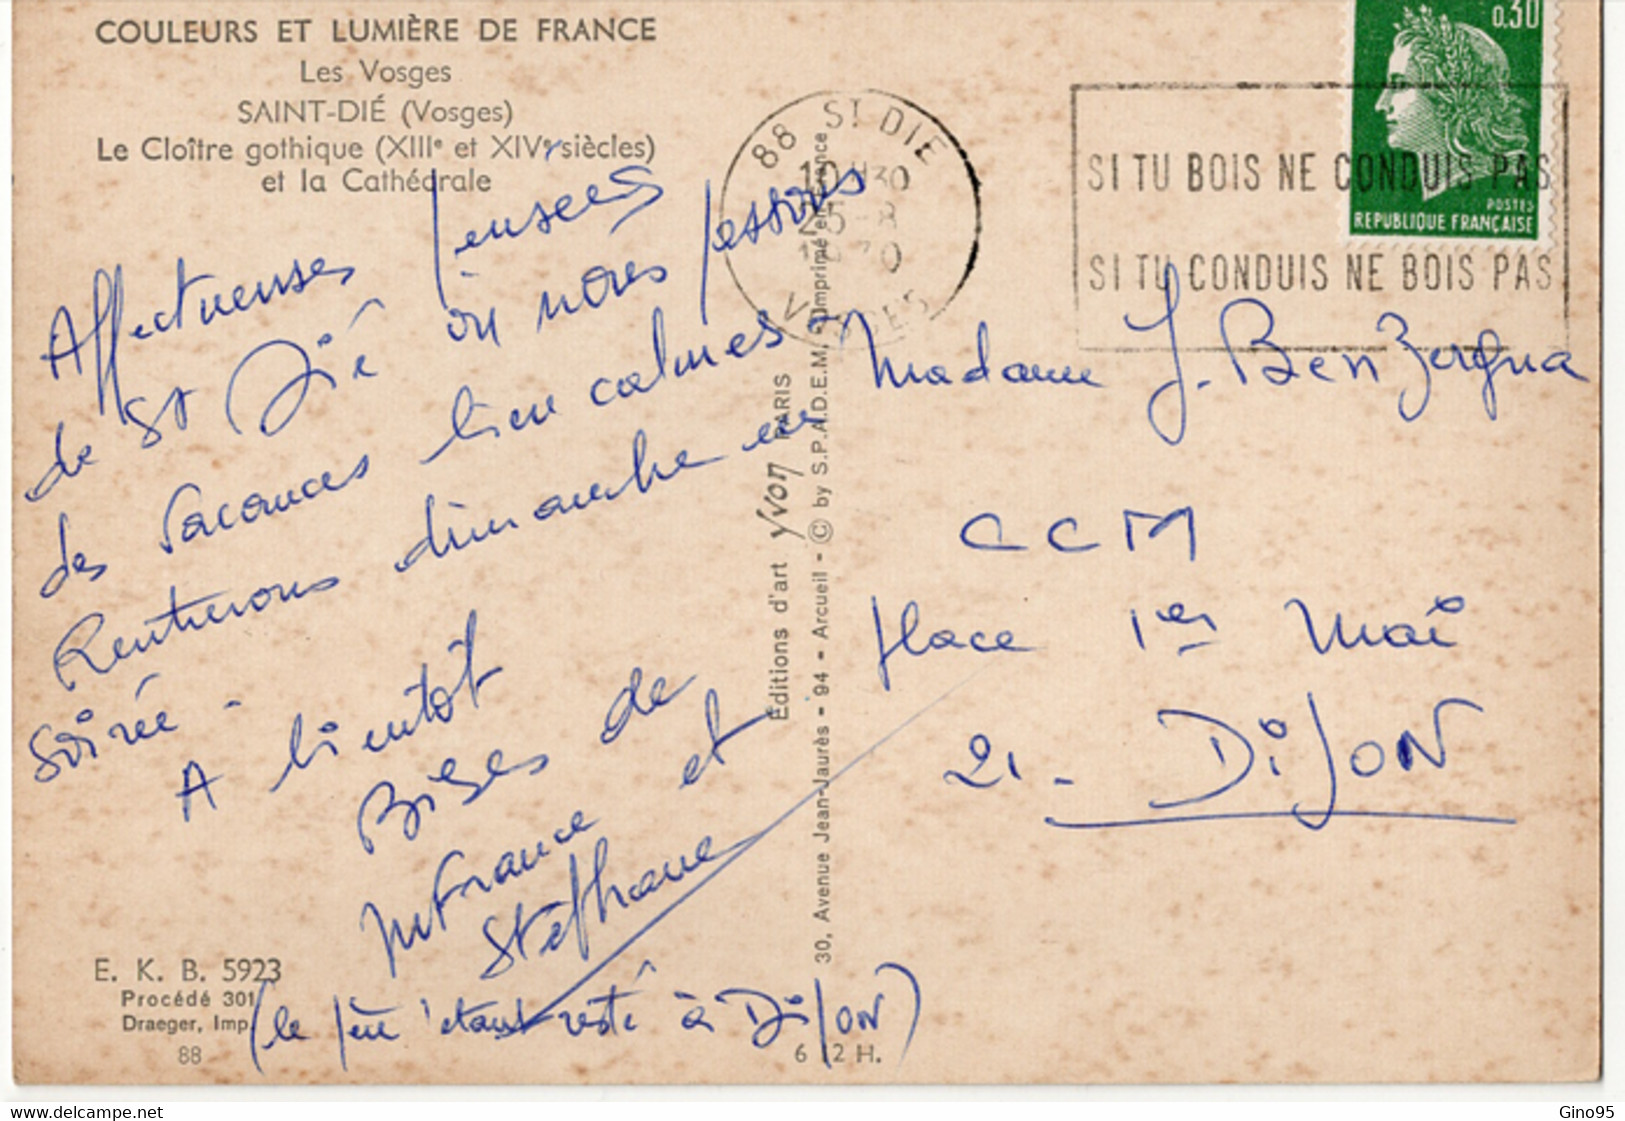 COULEURS ET LUMIÈRE DE FRANCE
Les Vosges
SAINT-DIÉ (Vosges)
Le Cloître gothique (XIIIe et XIVe siècles)
et la Cathédrale
Affectueuses pensées
de St Dié où nous passons
des vacances bien calmes -
Rentrerons dimanche en
soirée -
A bientôt
Bises de
et
Stéphane
(le père étant resté à DiJON)
E. K. B. 5923
Procédé 301
Draeger, Imp.
88
6 12 H.
Éditions d'art Yvon PARIS
30, Avenue Jean-Jaurès - 94 - Arcueil - © by S.P.A.D.E.M. Imprimé en France
88 ST DIE
25-8
VOSGES
0.30
POSTES
REPUBLIQUE FRANÇAISE
SI TU BOIS NE CONDUIS PAS
SI TU CONDUIS NE BOIS PAS
Madame J. BenZergua
CCM
Place 1er Mai
21 - DiJON
Gino95
delcampe.net